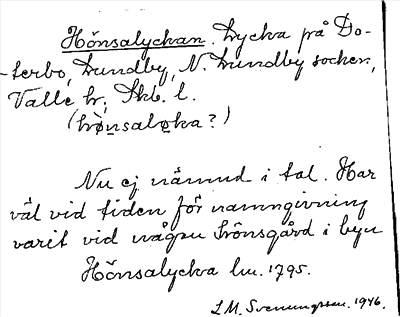 Hönsalyckan. Lycka på Do-
terbo, Lundby, N. Lundby socken,
Valle hr, Skb. l.
(hø̀nsaløka?)
Nu ej nämnd i tal. Har
väl vid tiden för namngivning
varit vid någon hönsgård i byn
Hönsalycka lm. 1795.
L M. Svenungsson. 1946.